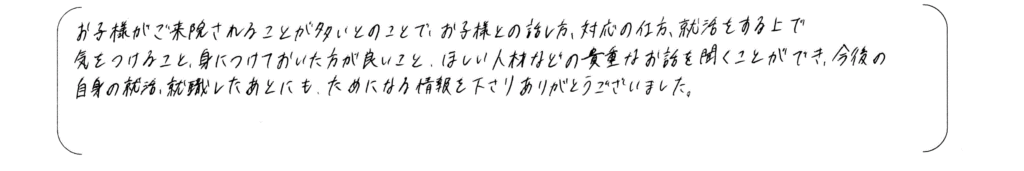 お子様がご来院されることが多いとのことで、お子様との話し方、対応の仕方、就活をする上で
気をつけること、身につけておいた方が良いこと、ほしい人材などの貴重なお話を聞くことができ、今後の
自身の就活、就職したあとにも、ためになる情報を下さりありがとうございました。